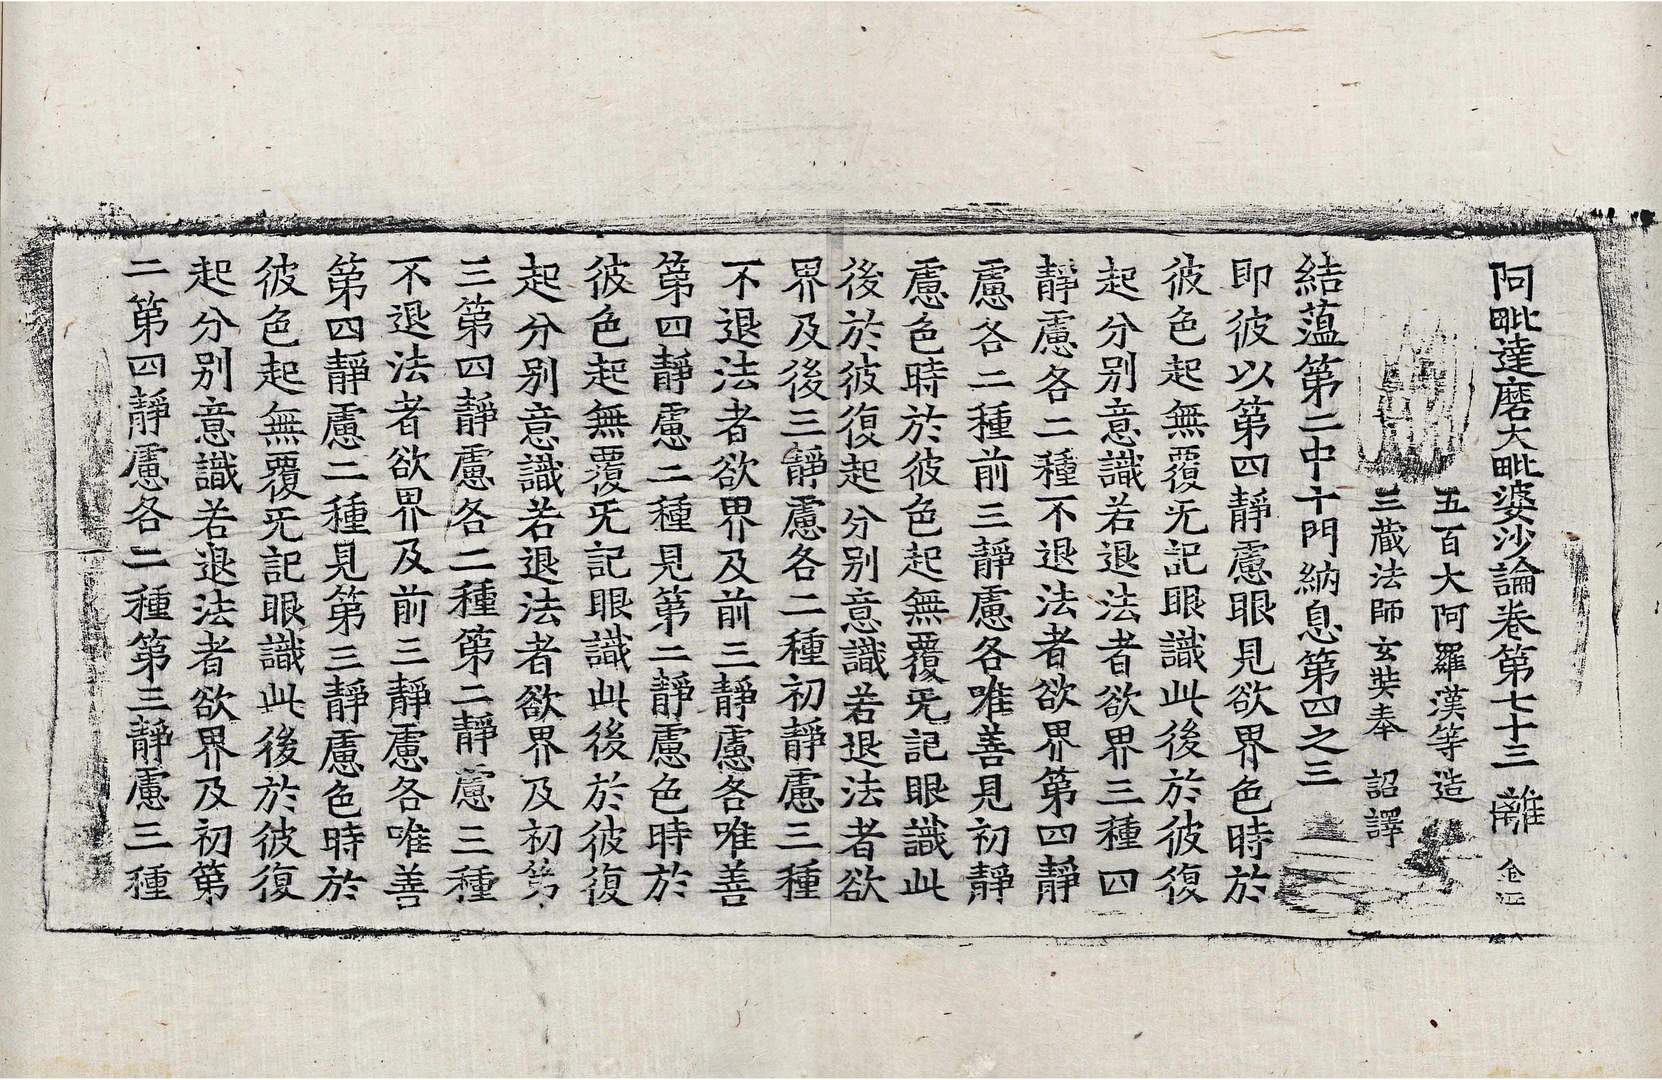 阿毗達磨大毗婆沙論卷第七十三 離
五百大阿羅漢等造
三蔵法師玄奘奉 詔譯
結蕰第二中十門納息第四之三
即彼以第四靜慮眼見欲界色時於
彼色起無覆无記眼識此後於彼復
起分别意識若退法者欲界三種四
靜慮各二種不退法者欲界第四靜
慮各二種前三靜慮各唯善見初靜
慮色時於彼色起無覆无記眼識此
後於彼復起分别意識若退法者欲
界及後三靜慮各二種初靜慮三種
不退法者欲界及前三靜慮各唯善
第四靜慮二種見第二靜慮色時於
彼色起無覆无記眼識此後於彼復
起分别意識若退法者欲界及初第
三第四靜慮各二種第二靜慮三種
不退法者欲界及前三靜慮各唯善
第四靜慮二種見第三靜慮色時於
彼色起無覆无記眼識此後於彼復
起分别意識若退法者欲界及初第
二第四靜慮各二種第三靜慮三種